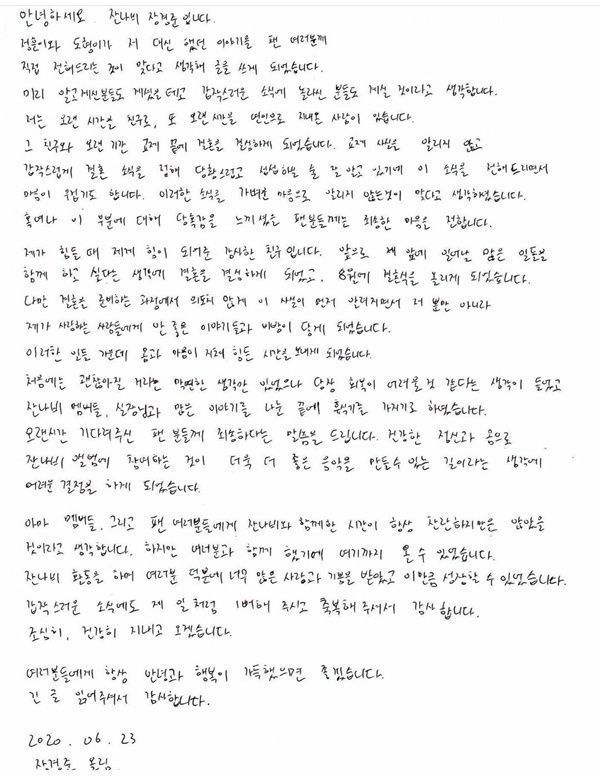 안녕하세요 잔나비 장경준입니다.
정훈이와 도형이가 저 대신 했던 이야기를 팬 여러분께
직접 전해드리는 것이 맞다고 생각해 글을 쓰게 되었습니다.
미리 알고계신분들도 계셨을테고 갑작스러운 소식에 놀라신 분들도 계실 것이라고 생각합니다.
저는 오랜 시간을 친구로, 또 오랜 시간을 연인으로 지내온 사람이 있습니다.
그 친구와 오랜 기간 교제 끝에 결혼을 결심하게 되었습니다. 교제 사실을 알리지 않고
갑작스럽게 결혼 소식을 전해 당황스럽고 섭섭하실 줄 잘 알고 있기에 이 소식을 전해드리면서
마음이 무겁기도 합니다. 이러한 소식을 가벼운 마음으로 알리지 않는것이 맞다고 생각하였습니다.
혹여나 이 부분에 대해 당혹감을 느끼셨을 팬분들께는 죄송한 마음을 전합니다.
제가 힘들 때 제게 힘이 되어준 감사한 친구입니다. 앞으로 제 앞에 일어날 많은 일들을
함께 하고 싶다는 생각에 결혼을 결심하게 되었고, 8월에 결혼식을 올리게 되었습니다.
다만 결혼을 준비하는 과정에서 의도치 않게 이 사실이 먼저 알려지면서 저 뿐만 아니라
제가 사랑하는 사람들에게 안 좋은 이야기들과 비방이 담게 되었습니다.
이러한 일들 가운데 몸과 마음이 지쳐 힘든 시간을 보내게 되었습니다.
처음에는 괜찮아질 거라는 막연한 생각만 있었으나 당장 회복이 어려울 것 같다는 생각이 들었고
잔나비 멤버들, 실장님과 많은 이야기를 나눈 끝에 휴식기를 가지기로 하였습니다.
오랜시간 기다려주신 팬 분들께 죄송하다는 말씀을 드립니다. 건강한 정신과 몸으로
잔나비 앨범에 참여하는 것이 더욱 더 좋은 음악을 만들수 있는 길이라는 생각에
어려운 결정을 하게 되었습니다.
아마 멤버들, 그리고 팬 여러분들에게 잔나비와 함께한 시간이 항상 찬란하지만은 않았을
것이라고 생각합니다. 하지만 여러분과 함께 했기에 여기까지 올 수 있었습니다.
잔나비 활동을 하며 여러분 덕분에 너무 많은 사랑과 기쁨을 받았고 이만큼 성장할 수 있었습니다.
갑작스러운 소식에도 제 일처럼 위해 주시고 축복해 주셔서 감사합니다.
조심히, 건강히 지내고 오겠습니다.
여러분들에게 항상 안녕과 행복이 가득했으면 좋겠습니다.
긴 글 읽어주셔서 감사합니다.
2020. 06. 23
장경준 올림